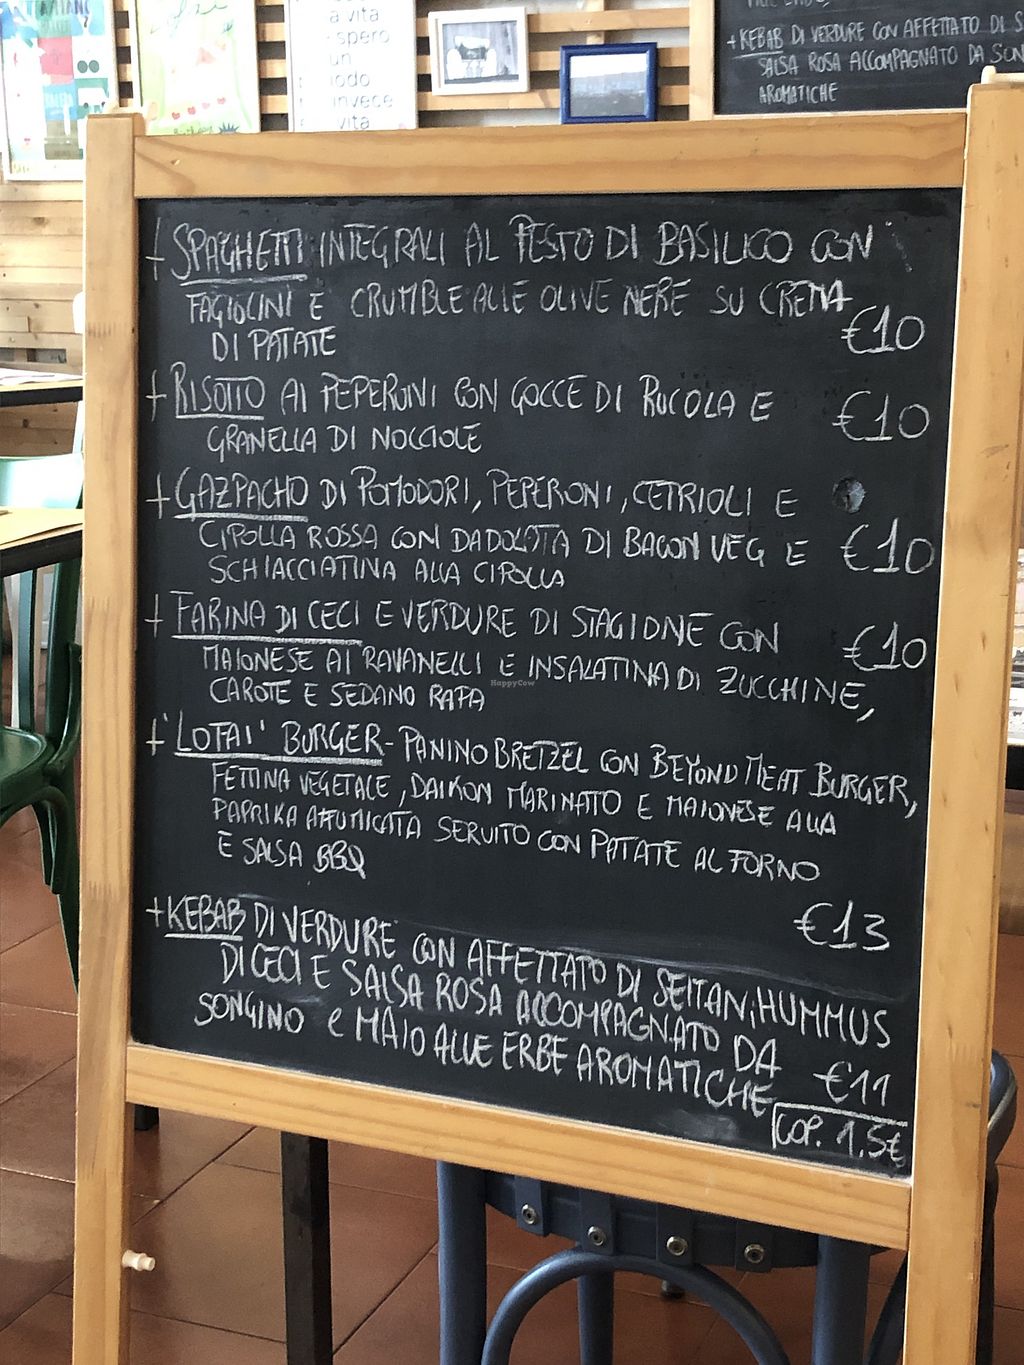 a vita
- spero
un
iodo
invece
vita
+ KEBAB DI VERDURE CON AFFETTATO DI S
SALSA ROSA ACCOMPAGNATO DA SON
AROMATICHE
+ SPAGHETTI INTEGRALI AL PESTO DI BASILICO CON
FAGIOLINI E CRUMBLE ALLE OLIVE NERE SU CREMA
DI PATATE €10
+ RISOTTO AI PEPERONI CON GOCCE DI RUCOLA E
GRANELLA DI NOCCIOLE €10
+ GAZPACHO DI POMODORI, PEPERONI, CETRIOLI E
CIPOLLA ROSSA CON DADOLATA DI BACON VEG E €10
SCHIACCIATINA ALLA CIPOLLA
+ FARINA DI CECI E VERDURE DI STAGIONE CON €10
MAIONESE AI RAVANELLI E INSALATINA DI ZUCCHINE,
CAROTE E SEDANO RAPA
HappyCow
+ 'LOTAI' BURGER - PANINO BRETZEL CON BEYOND MEAT BURGER,
FETTINA VEGETALE, DAIKON MARINATO E MAIONESE ALLA
PAPRIKA AFFUMICATA SERVITO CON PATATE AL FORNO
E SALSA BBQ
€13
+ KEBAB DI VERDURE CON AFFETTATO DI SEITAN, HUMMUS
DI CECI E SALSA ROSA ACCOMPAGNATO DA
SONGINO e MAIO ALLE ERBE AROMATICHE €11
COP. 1,5€